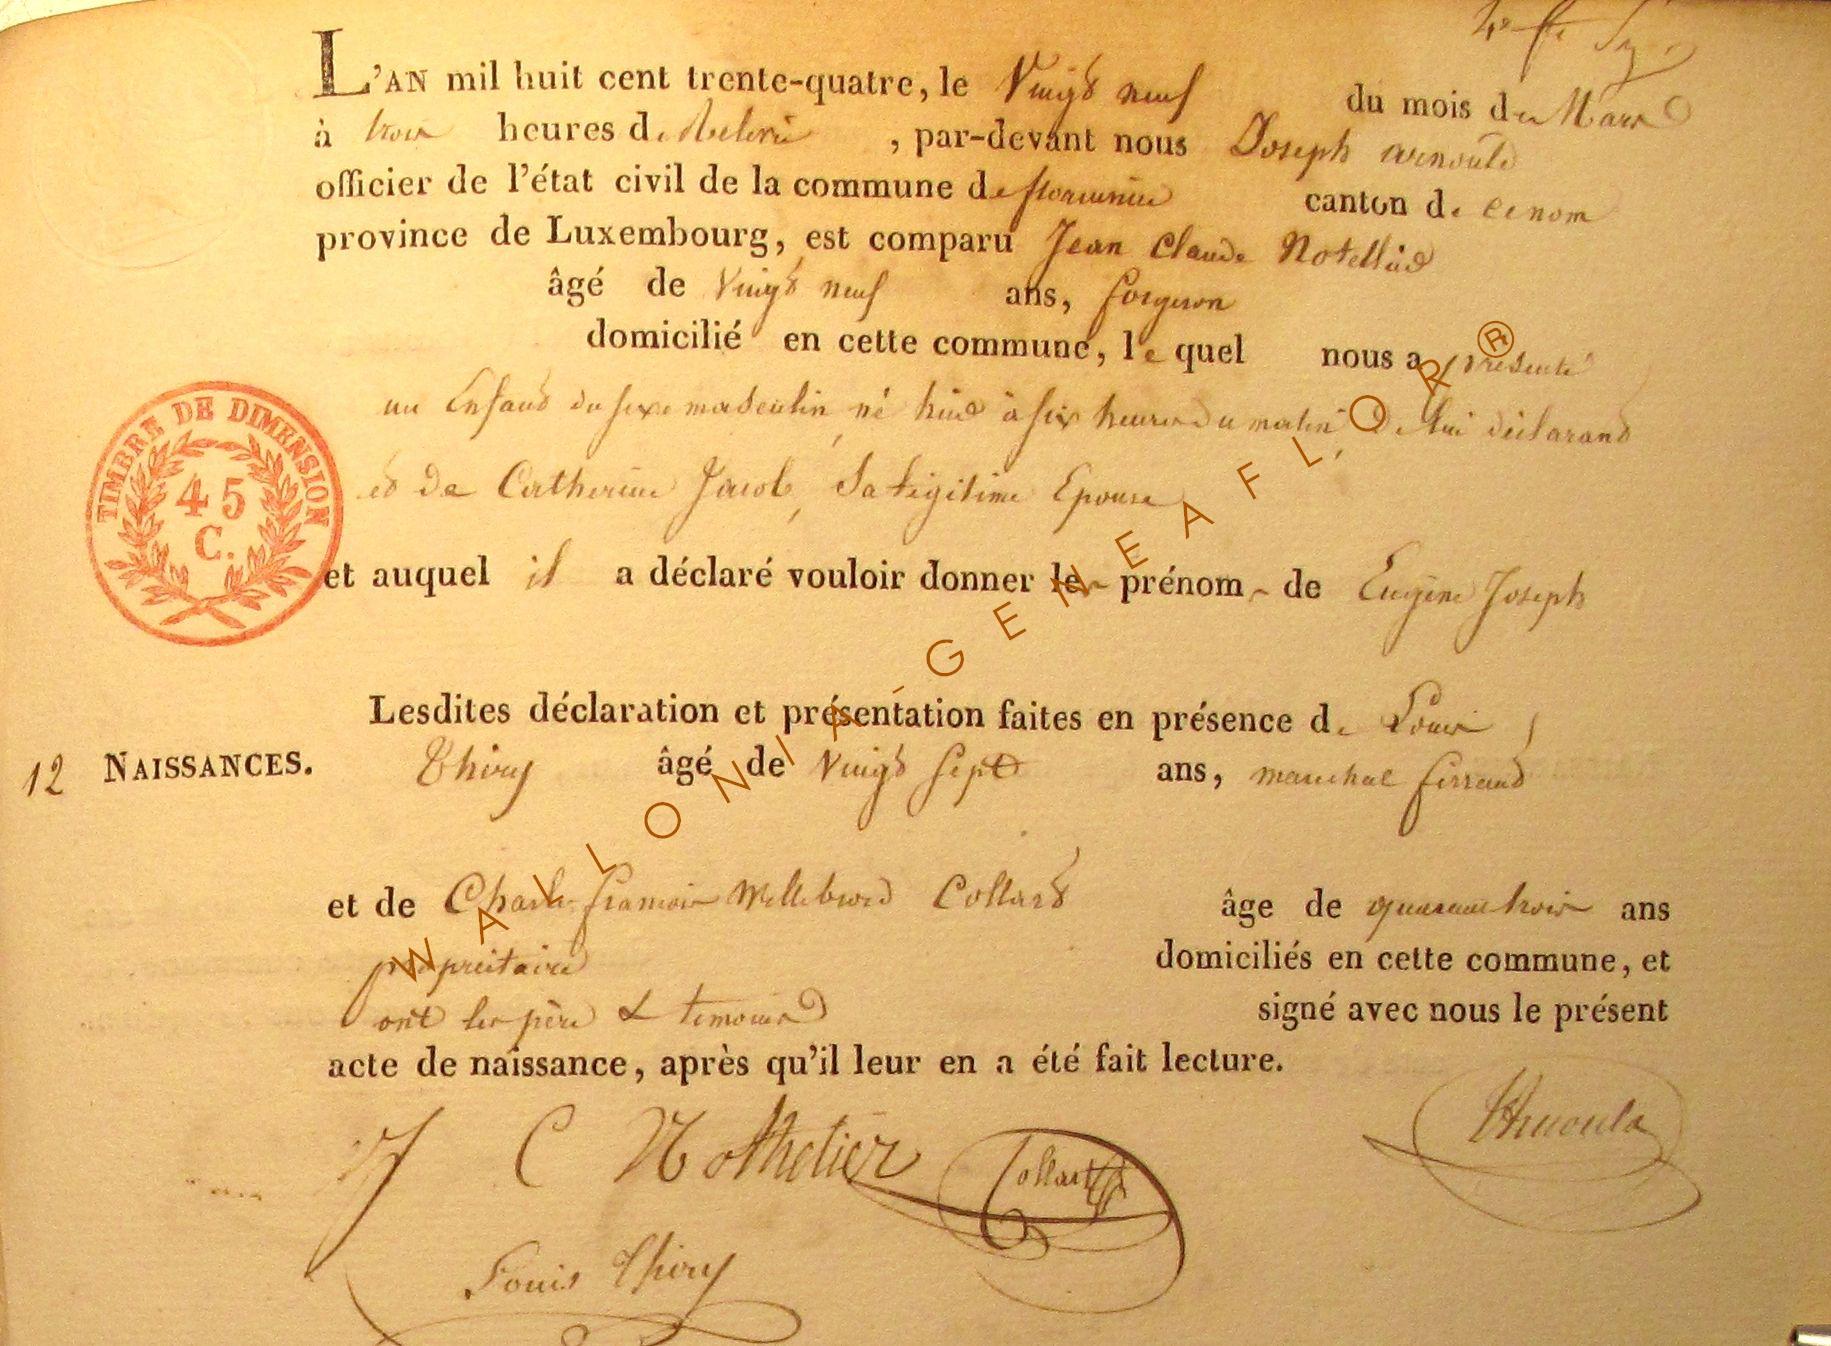 L'AN mil huit cent trente-quatre, le Vingt neuf du mois de Mars
à trois heures de relevée, par-devant nous Joseph arnould
officier de l'état civil de la commune de florenville canton de ce nom
province de Luxembourg, est comparu Jean Claude Notellier
âgé de Vingt neuf ans, forgeron
domicilié en cette commune, le quel nous a présenté
un Enfant du sexe masculin, né hier à six heures du matin, de lui déclarant
et de Catherine Jacob, Sa Légitime Epouse
et auquel il a déclaré vouloir donner le prénom de Eugène Joseph
Lesdites déclaration et présentation faites en présence de Louis
12 NAISSANCES. Thiry âgé de Vingt Sept ans, marechal ferrand
et de Charle françois Willebrord Collard âge de quarante trois ans
propriétaire domiciliés en cette commune, et
ont les père & temoins signé avec nous le présent
acte de naissance, après qu'il leur en a été fait lecture.
J C Nothelier Collard Arnould
Louis Thiry
TIMBRE DE DIMENSION
45
C.
WALLONIA-GENEAFLOR®